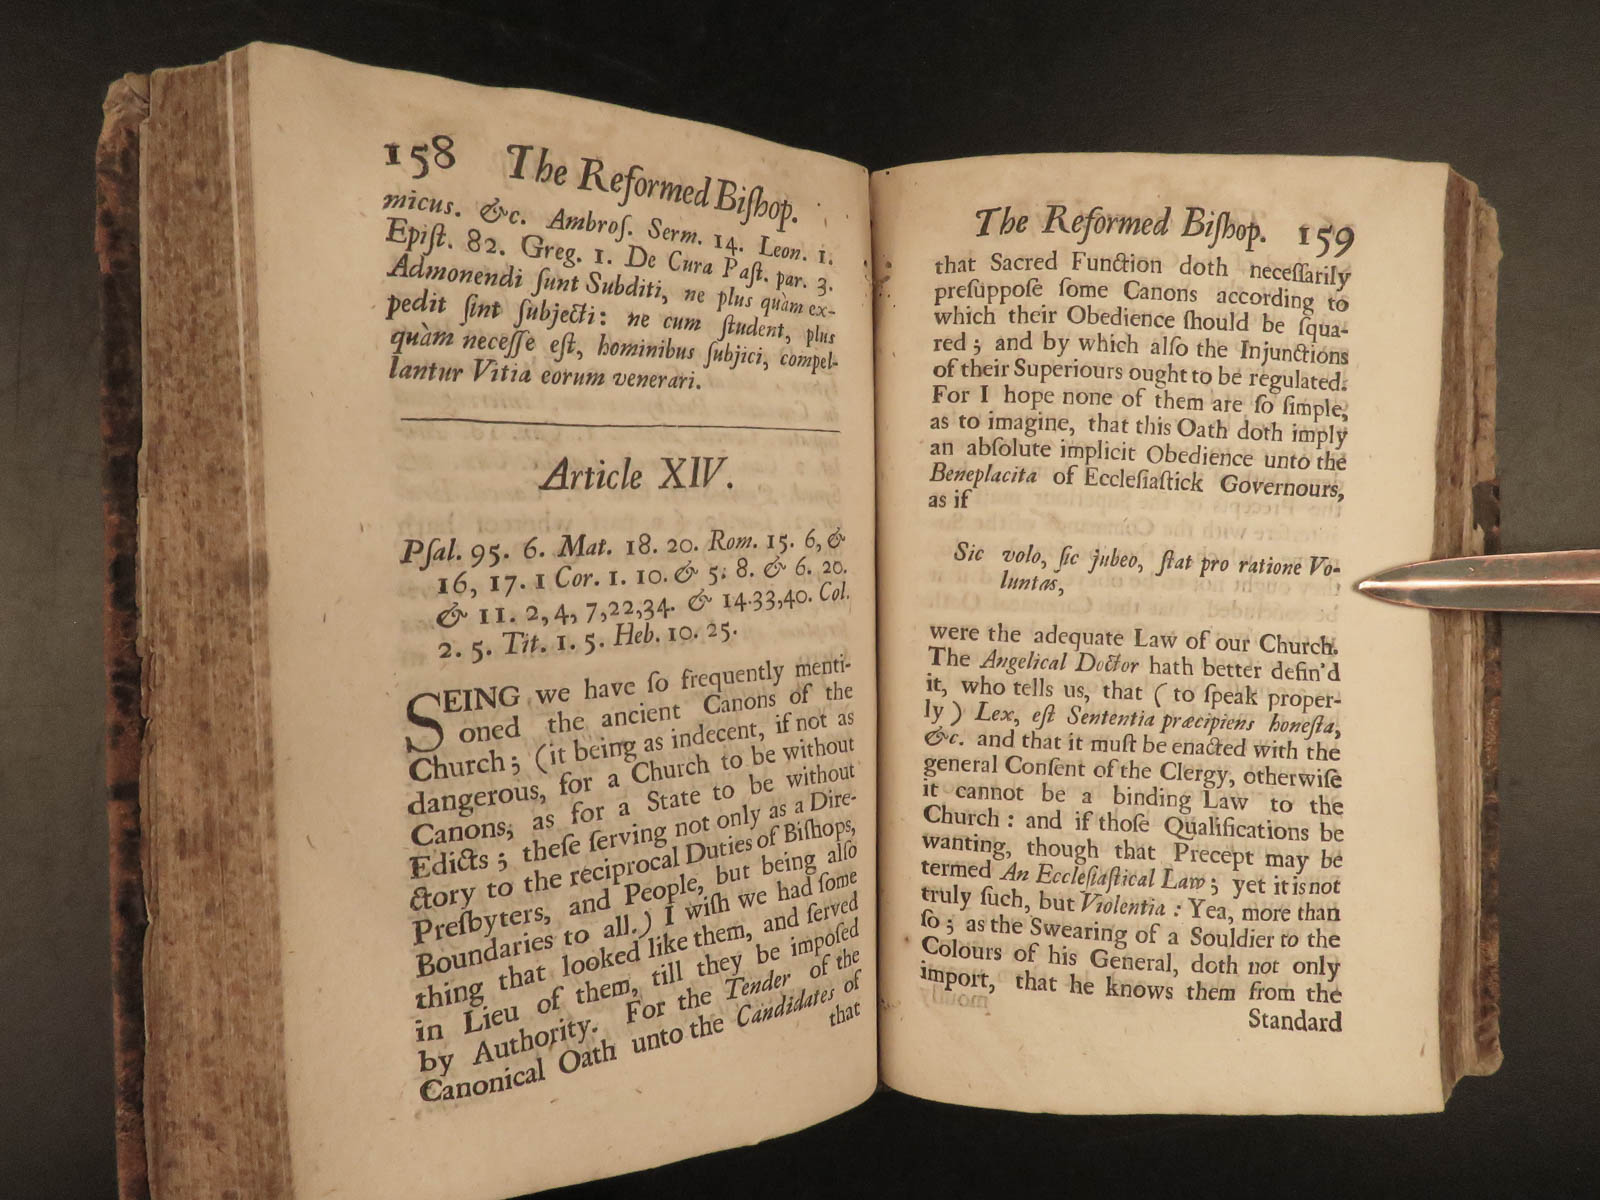 158 The Reformed Biſhop.
micus. &c. Ambroſ. Serm. 14. Leon. 1.
Epiſt. 82. Greg. 1. De Cura Paſt. par. 3.
Admonendi ſunt Subditi, ne plus quàm ex-
pedit ſint ſubjecti: ne cum ſtudent, plus
quàm neceſſe eſt, hominibus ſubjici, compel-
lantur Vitia eorum venerari.
Article XIV.
Pſal. 95. 6. Mat. 18. 20. Rom. 15. 6, &
16, 17. 1 Cor. 1. 10. & 5. 8. & 6. 20.
& 11. 2, 4, 7, 22, 34. & 14. 33, 40. Col.
2. 5. Tit. 1. 5. Heb. 10. 25.
SEING we have ſo frequently menti-
oned the ancient Canons of the
Church; (it being as indecent, if not as
dangerous, for a Church to be without
Canons, as for a State to be without
Edicts; theſe ſerving not only as a Dire-
ctory to the reciprocal Duties of Biſhops,
Preſbyters, and People, but being alſo
Boundaries to all.) I wiſh we had ſome
thing that looked like them, and ſerved
in Lieu of them, till they be impoſed
by Authority. For the Tender of the
Canonical Oath unto the Candidates of
that
The Reformed Biſhop. 159
that Sacred Function doth neceſſarily
preſuppoſe ſome Canons according to
which their Obedience ſhould be ſqua-
red; and by which alſo the Injunctions
of their Superiours ought to be regulated.
For I hope none of them are ſo ſimple,
as to imagine, that this Oath doth imply
an abſolute implicit Obedience unto the
Beneplacita of Eccleſiaſtick Governours,
as if
Sic volo, ſic jubeo, ſtat pro ratione Vo-
luntas,
were the adequate Law of our Church.
The Angelical Doctor hath better defin'd
it, who tells us, that (to ſpeak proper-
ly) Lex, eſt Sententia præcipiens honeſta,
&c. and that it muſt be enacted with the
general Conſent of the Clergy, otherwiſe
it cannot be a binding Law to the
Church: and if thoſe Qualifications be
wanting, though that Precept may be
termed An Eccleſiaſtical Law; yet it is not
truly ſuch, but Violentia: Yea, more than
ſo; as the Swearing of a Souldier to the
Colours of his General, doth not only
import, that he knows them from the
Standard